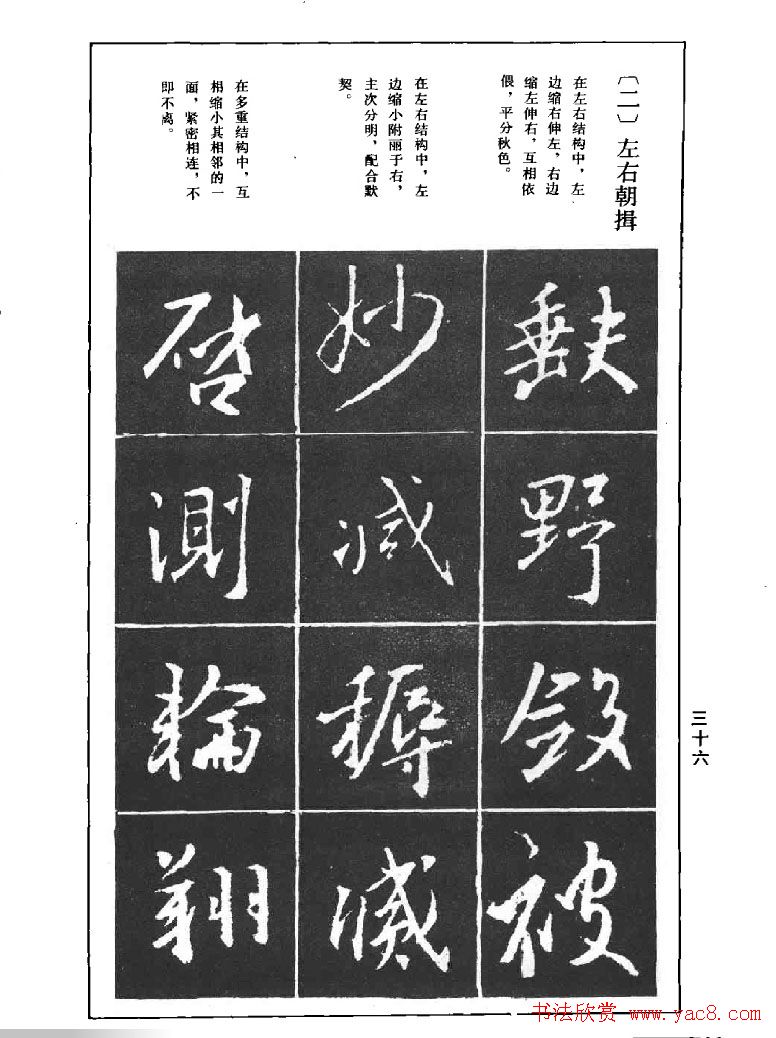 〔二〕左右朝揖
在左右结构中，左
边缩右伸左，右边
缩左伸右，互相依
偎，平分秋色。
野
被
在左右结构中，左
边缩小附丽于右，
主次分明，配合默
契。
妙
减
在多重结构中，互
相缩小其相邻的一
面，紧密相连，不
即不离。
啓
測
輪
翔
三十六
书法欣赏 www.yac8.com